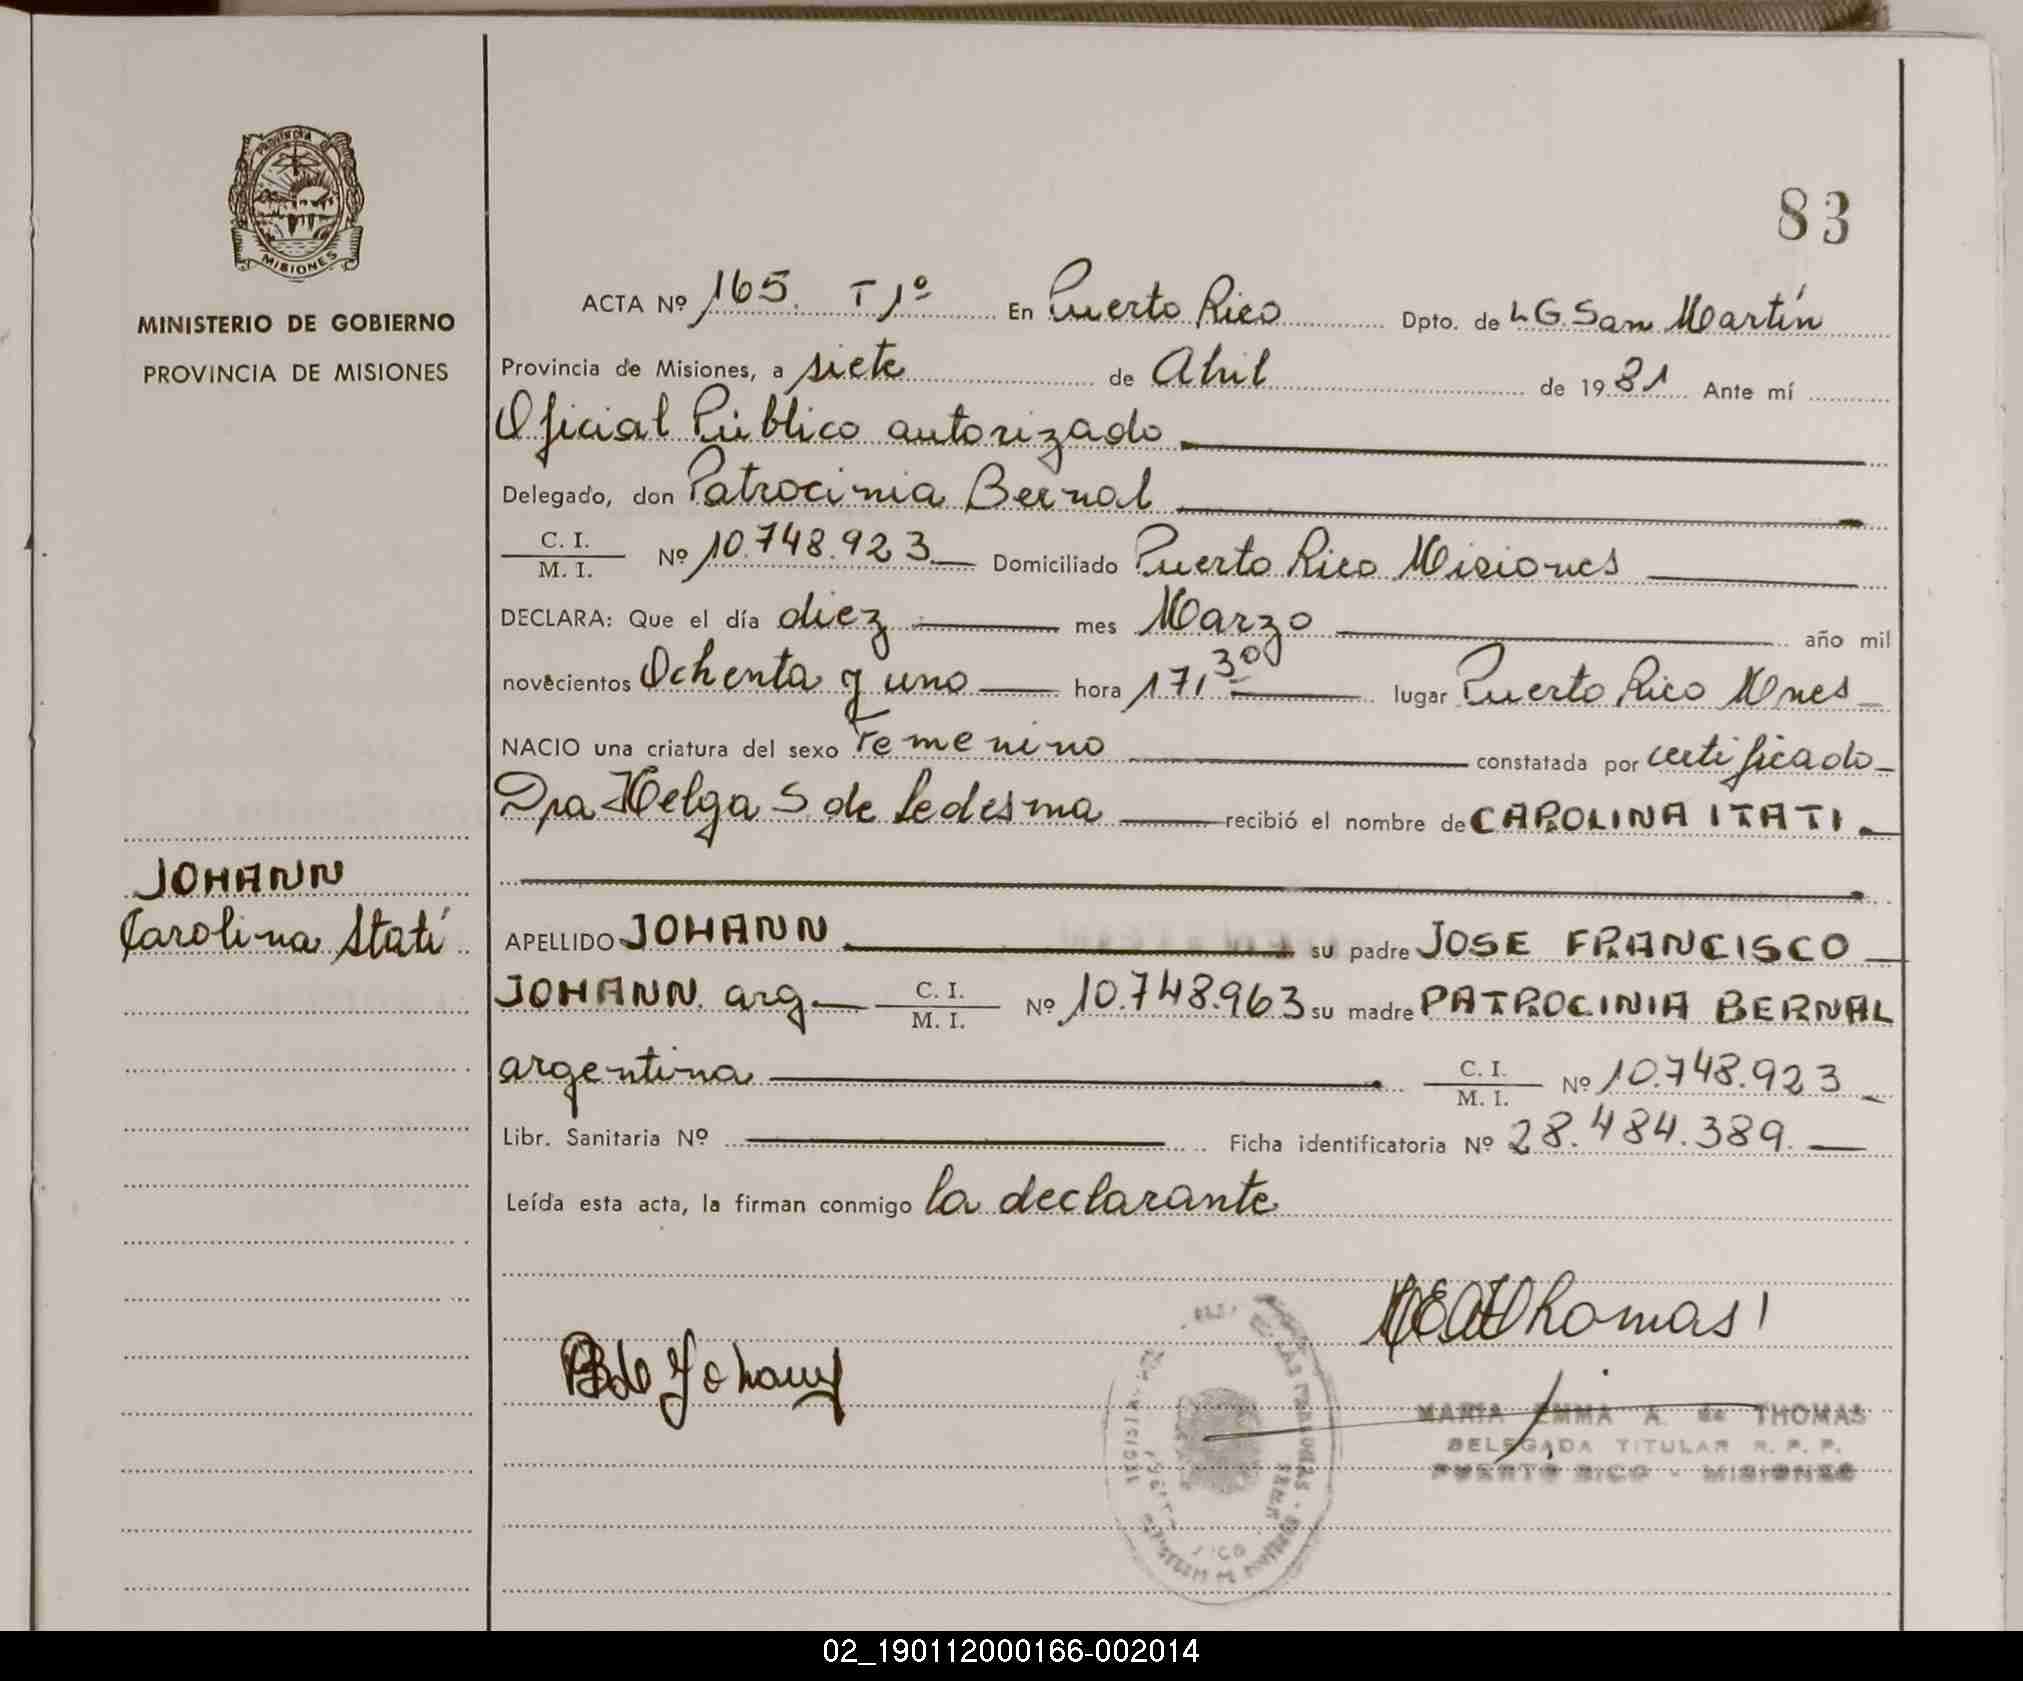 PROVINCIA
MISIONES
MINISTERIO DE GOBIERNO
PROVINCIA DE MISIONES
JOHANN
Carolina Itatí
83
ACTA Nº 165. T 1º En Puerto Rico Dpto. de L G. San Martín
Provincia de Misiones, a siete de Abril de 1981 Ante mí
Oficial Público autorizado
Delegado, don Patrocinia Bernal
C. I.
M. I. Nº 10.748.923 Domiciliado Puerto Rico Misiones
DECLARA: Que el día diez mes Marzo año mil
novecientos Ochenta y uno hora 17,30 lugar Puerto Rico Mnes
NACIO una criatura del sexo Femenino constatada por certificado
Dra Helga S. de Ledesma recibió el nombre de CAROLINA ITATI
APELLIDO JOHANN su padre JOSE FRANCISCO
JOHANN. arg. C. I. M. I. Nº 10.748.963 su madre PATROCINIA BERNAL
argentina C. I. M. I. Nº 10.748.923
Libr. Sanitaria Nº Ficha identificatoria Nº 28.484.389.
Leída esta acta, la firman conmigo la declarante
MEAThomas
PBde Johann
MARIA EMMA A. de THOMAS
DELEGADA TITULAR R. P. P.
PUERTO RICO - MISIONES
02_190112000166-002014